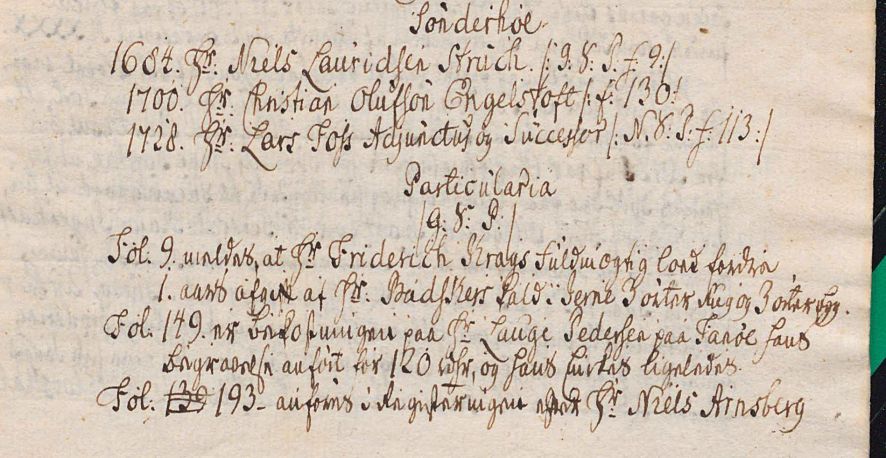 Sönderhoe.
1684. Hr. Niels Lauridsen Struch. /: G. S. P. f. 9:/
1700. Hr. Christian Olufsön Engelstoft /: f. 130:/
1728. Hr. Lars Foss Adjunctus og Successor /: N. S. P. f. 113:/
Particularia
/ G. S. P. /
Fol. 9. meldes, at Hr. Friderich Krags fuldmægtig loed fordre
1. aars afgift af Hr. Badskers Kald i Jerne 3 örter Rug og 3 örter byg.
Fol. 149. er bekostningen paa Hr. Lauge Pedersen paa Fanöe hans
begravelse anfört for 120 rdr, og hans hustrues ligeledes.
Fol. 193 - anföres i Registeringen efter Hr. Niels Arnsberg